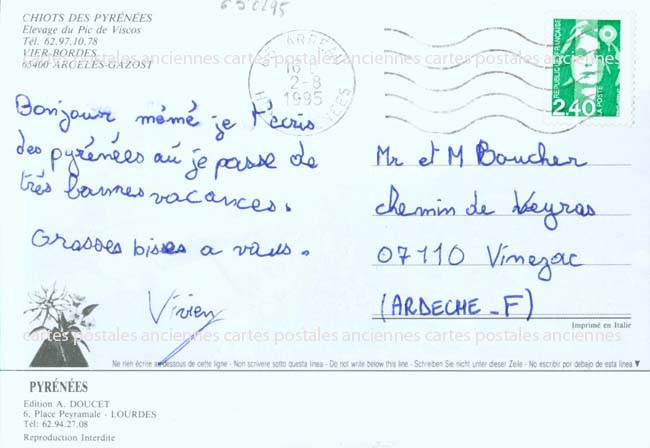 650295
CHIOTS DES PYRÉNÉES
Elevage du Pic de Viscos
Tél. 62.97.10.78
VIER-BORDES
65400 ARCELÈS-GAZOST
65 ARRE
16 H
2-8
1995
PYRENEES
REPUBLIQUE FRANÇAISE
LA POSTE
2,40
cartes postales anciennes cartes postales anciennes cartes postales anciennes
Bonjour mémé je t'écris
des pyrénées aú je passe de
trés bonnes vacances.
Grosses bises a vous.
Vivien
Mr et M Boucher
chemin de Veyras
07110 Vinezac
(ARDECHE-F)
Imprimé en Italie
cartes postales anciennes cartes postales anciennes cartes postales anciennes
Ne rien écrire au dessous de cette ligne - Non scrivere sotto questa linea - Do not write below this line - Schreiben Sie nicht unter dieser Zeile - No escribir por debajo de esta linea ▼
PYRÉNÉES
Edition A. DOUCET
6, Place Peyramale - LOURDES
Tél: 62.94.27.08
Reproduction Interdite